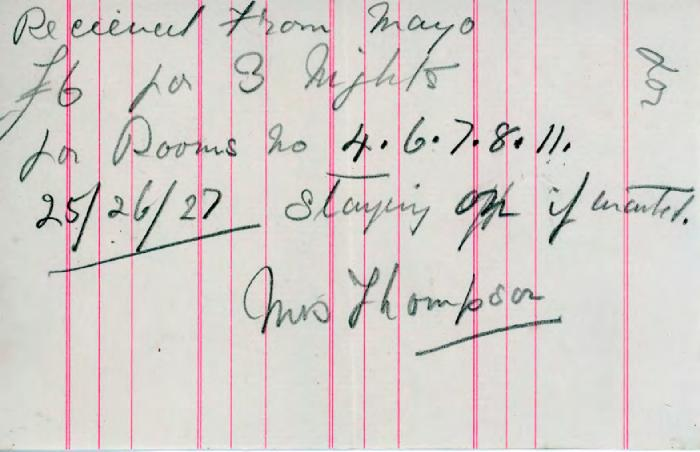 Recieved From Mayo
£6 for 3 Nights
for Rooms no 4. 6. 7. 8. 11.
25/26/27 Staying if wanted.
Mrs Thompson